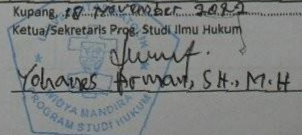 Kupang, 18 November 2022
Ketua/Sekretaris Prog. Studi Ilmu Hukum
Yohanes Arman, SH., M.H
WIDYA MANDIRA
PROGRAM STUDI HUKUM